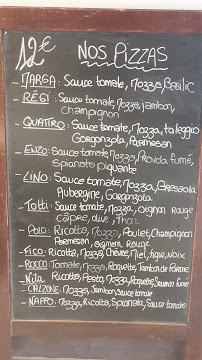 12€ NOS PIZZAS
- MARGA : Sauce tomate, Mozza, Basilic
- RÉGI : Sauce tomate, Mozza, jambon,
champignon
- QUATTRO : Sauce tomate, Mozza, taleggio
Gorgonzola, Parmesan
- ENZO : Sauce tomate, Mozza, Provola fumé,
Spianata piquante
- LINO : Sauce tomate, Mozza, Bresaola
Aubergine, Gorgonzola
- Totti : Sauce tomate, Mozza, oignon rouge
capre, olive, thon
- POLO : Ricotta, Mozza, Poulet, Champignon
Parmesan, oignon rouge
- FICO : Ricotta, Mozza, Chèvre, Miel, figue, Noix
- ROCCO : Tomate, Mozza, Roquette, Jambon de Parme
- Nila : Ricotta, Pesto, Mozza, Roquette, Saumon fumé
- CALZONE : Mozza, Jambon, Sauce tomate
- NAPPO : Mozza, Ricotta, Spianata, Sauce tomate